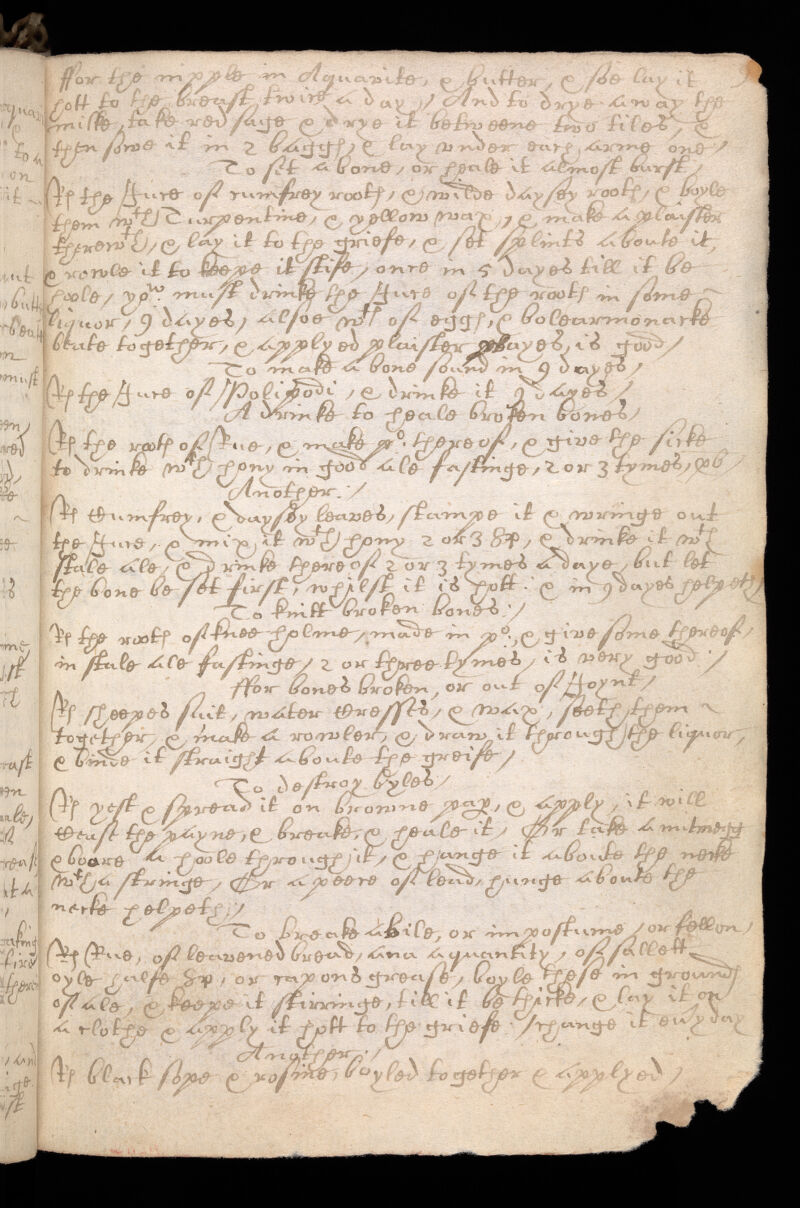 ffor the nipple in Aquavite, & butter, & soe lay it
hott to the breast twice a day / And to drye away the
milke, take red sage & drye it betweene two tiles, &
then sowe it in 2 baggs, & lay under each arme one /
To sit a bone, or heale it almost burst,
Rx the Juce of cumfrey rootes, & wilde daysey rootes, & boyle
them wth Turpentine, & yellow wax, & make a plaister
therewth, & lay it to the griefe, & set splints aboute it,
& rowle it to keepe it stife, once in 5 dayes till it be
hoole, yow must drinke the Juce of the rootes in some
liquor, 9 dayes, alsoe wth of eggs, & bolearmonacke
beate together, & applyed plaister dayes, is good /
To make a bone sound in 9 dayes /
Rx the Juce of Polipodi, & drinke it 9 dayes /
A drinke to heale broken bones,
Rx the roote of Rue, & make po: thereof, & give the sicke
to drinke wth hony in good ale fastinge, 2 or 3 tymes, pb /
Another: /
Rx Cumfrey, & daysey leaves, stampe it & wringe out
the Juce, & mix it wth hony 2 or 3 & drinke it wth
stale ale, & drinke thereof 2 or 3 tymes a daye, but let
the bone be set first, whilst it is hott: & in 9 dayes helpeth /
To knitt broken bones: /
Rx the rootes of knee holme, made in po: & give some thereof,
in stale ale fastinge, 2 or three tymes, is very good: /
ffor bones broken, or out of Joynt /
Rx sheepes suit, water Cresses, & wax, seeth them
together, & make a rowler, & draw it through the liquor,
& binde it straight aboute the greife /
To destroy byles /
Rx yest & spread it on browne pap, & apply, it will
Cease the payne, & breake, & heale it / Or take a nutmegg
& boare a hoole through it, & hange it aboute the necke
wth a stringe, Or a peece of lead, hunge aboute the
necke helpeth: /
To breake a bile, or impostume, or fellon,
Rx Rue, of leavened bread, ana a quantity, of sallett
oyle halfe or capons grease, boyle these in grounds
of ale, & keepe it stirringe, till it be thicke, & lay it on
a clothe & apply it hott to the griefe: / change it evy day
Another: /
Rx black sope & rosine, boyled together & applyed /